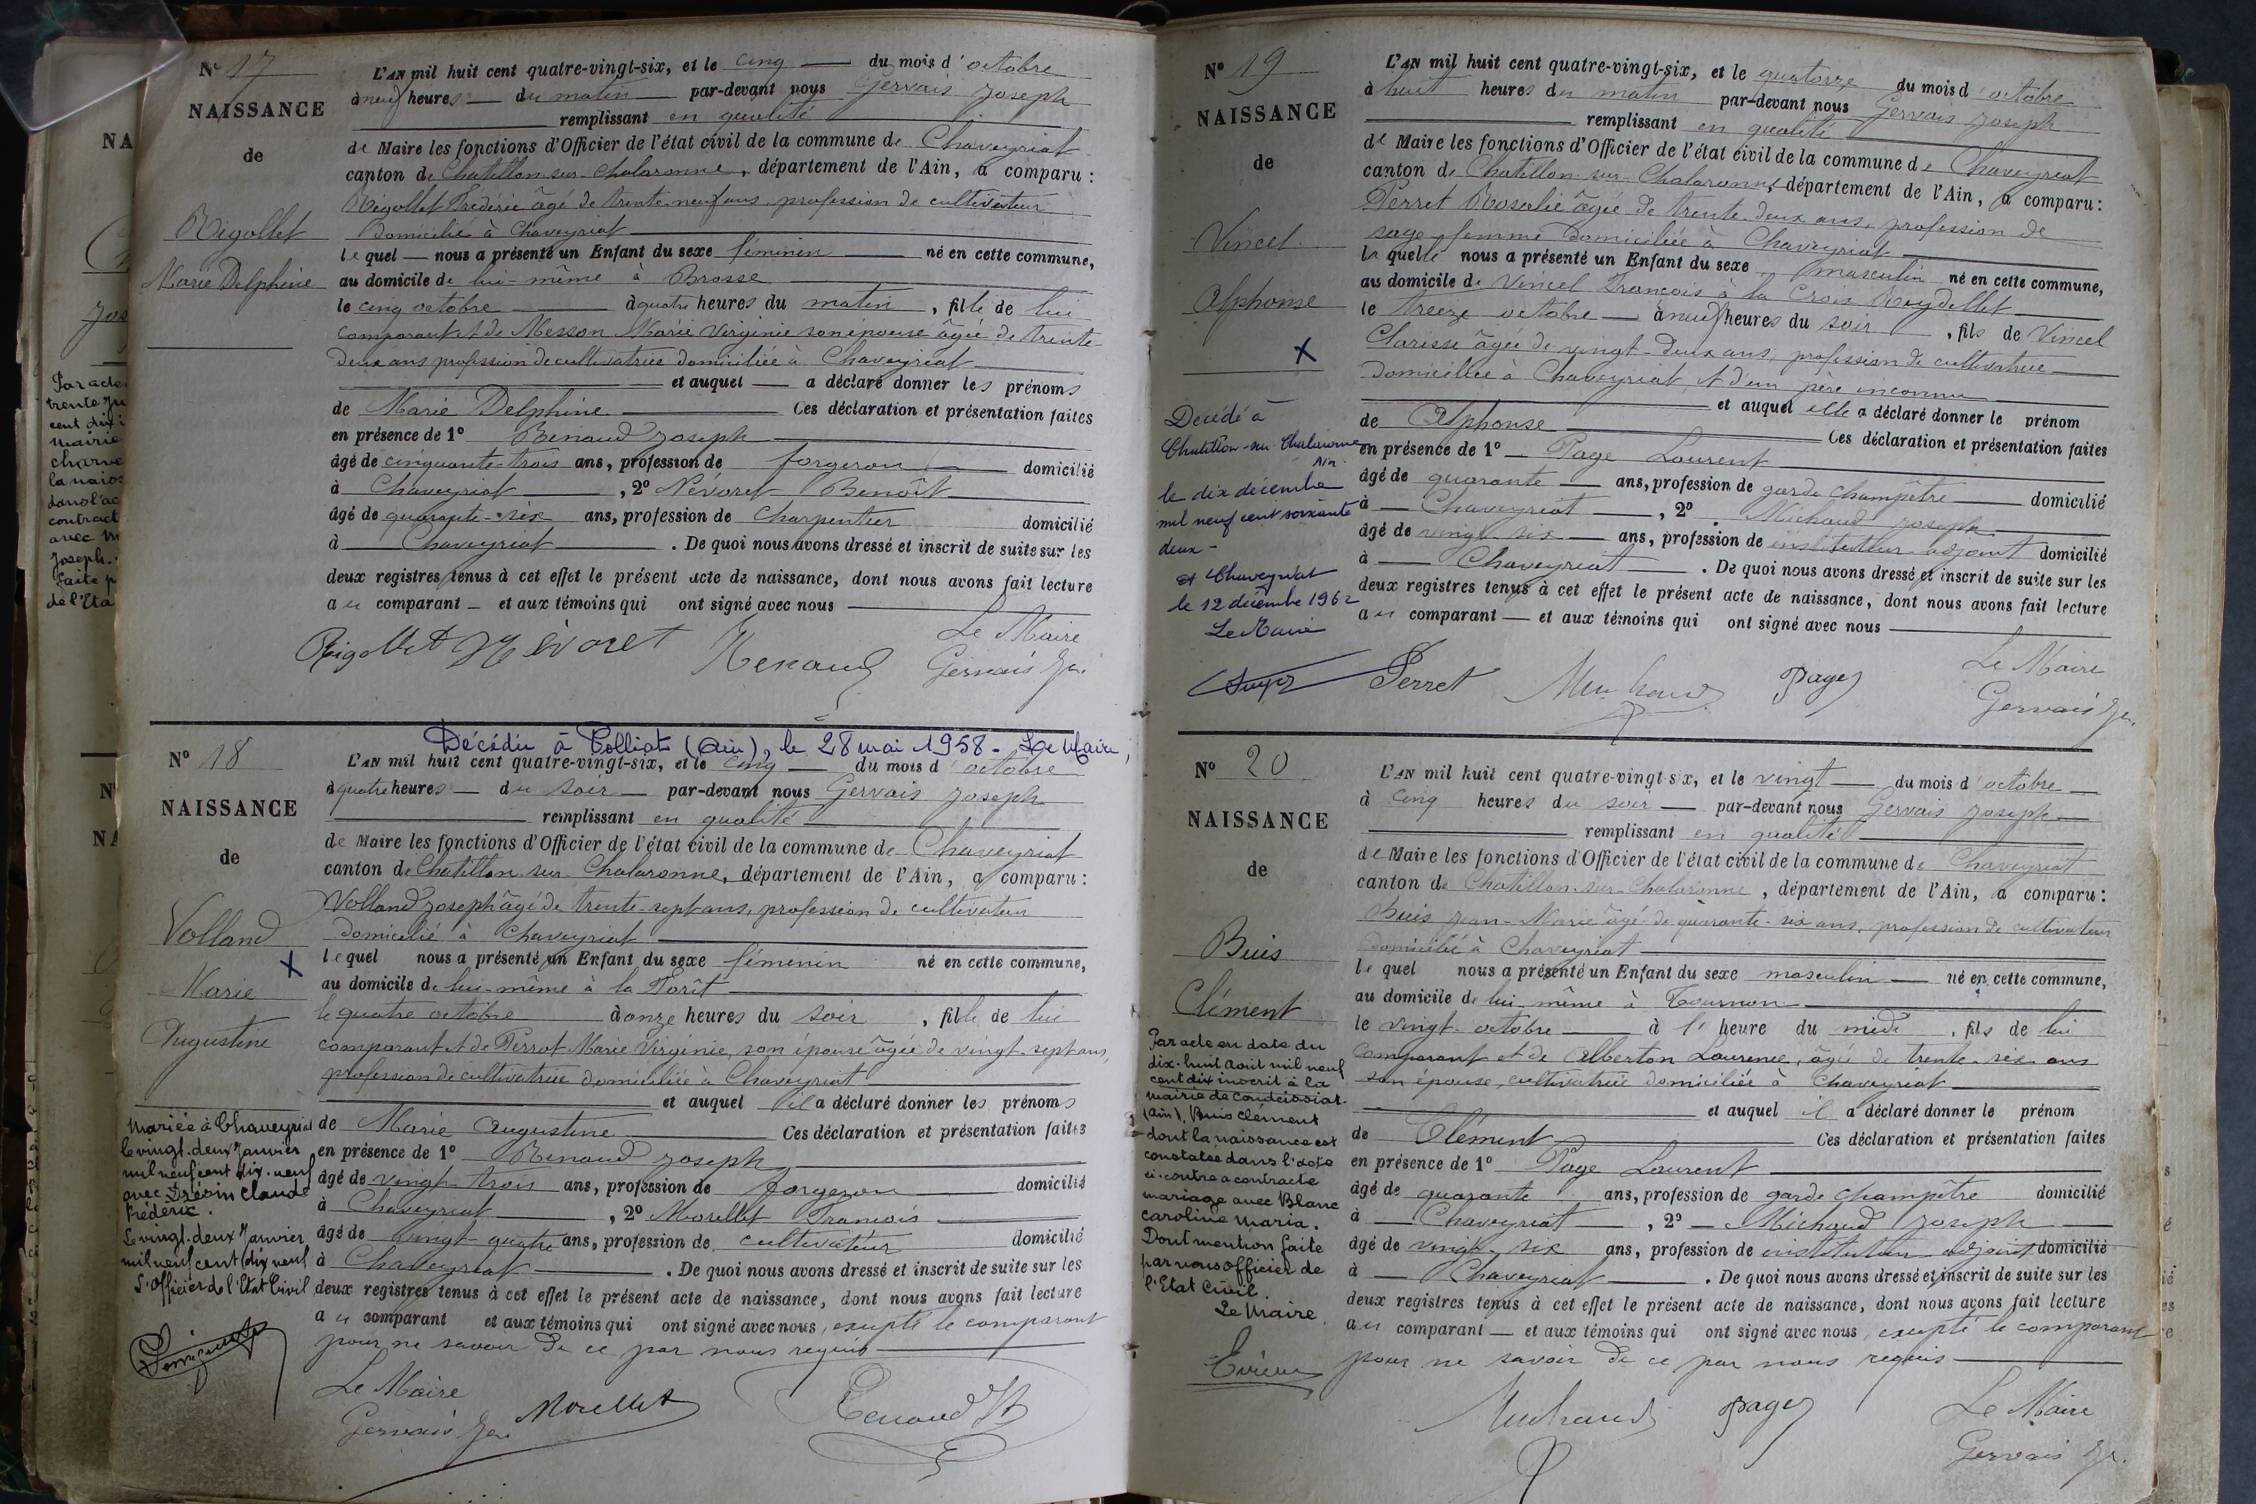 Nº 17
NAISSANCE
de
Rigollet
Marie Delphine
L'AN mil huit cent quatre-vingt-six, et le cinq du mois d'octobre
à neuf heures du matin par-devant nous Gervais Joseph
remplissant en qualité
de Maire les fonctions d'Officier de l'état civil de la commune de Chaveyriat
canton de Chatillon-sur-Chalaronne, département de l'Ain, a comparu :
Rigollet Frédéric âgé de trente-neuf ans, profession de cultivateur
domicilié à Chaveyriat
lequel nous a présenté un Enfant du sexe féminin né en cette commune,
au domicile de lui-même à Brosse
le cinq octobre à quatre heures du matin, fille de lui
comparant et de Messon Marie Virginie son épouse âgée de trente-
deux ans profession de cultivatrice domiciliée à Chaveyriat
et auquel a déclaré donner les prénoms
de Marie Delphine Ces déclaration et présentation faites
en présence de 1º Renaud Joseph
âgé de cinquante-trois ans, profession de forgeron domicilié
à Chaveyriat, 2º Névoret Benoît
âgé de quarante-six ans, profession de charpentier domicilié
à Chaveyriat. De quoi nous avons dressé et inscrit de suite sur les
deux registres tenus à cet effet le présent acte de naissance, dont nous avons fait lecture
au comparant et aux témoins qui ont signé avec nous
Le Maire
Rigollet Névoret Renaud Gervais Jh
Nº 18
NAISSANCE
de
Volland
Marie
Augustine
Mariée à Chaveyriat
le vingt-deux Janvier
mil neuf cent dix-neuf
avec Drésin Claude
Frédéric.
Le vingt-deux Janvier
mil neuf cent dix neuf
L'Officier de l'Etat Civil
Décédée à Polliat (Ain), le 28 mai 1958. Le Maire,
L'AN mil huit cent quatre-vingt-six, et le cinq du mois d'octobre
à quatre heures du soir par-devant nous Gervais Joseph
remplissant en qualité
de Maire les fonctions d'Officier de l'état civil de la commune de Chaveyriat
canton de Chatillon-sur-Chalaronne, département de l'Ain, a comparu :
Volland Joseph âgé de trente-sept ans, profession de cultivateur
domicilié à Chaveyriat
lequel nous a présenté un Enfant du sexe féminin né en cette commune,
au domicile de lui-même à la Forêt
le quatre octobre à onze heures du soir, fille de lui
comparant et de Perrot Marie Virginie, son épouse âgée de vingt-sept ans,
profession de cultivatrice domiciliée à Chaveyriat
et auquel il a déclaré donner les prénoms
de Marie Augustine Ces déclaration et présentation faites
en présence de 1º Renaud Joseph
âgé de vingt-trois ans, profession de forgeron domicilié
à Chaveyriat, 2º Morellet François
âgé de vingt-quatre ans, profession de cultivateur domicilié
à Chaveyriat. De quoi nous avons dressé et inscrit de suite sur les
deux registres tenus à cet effet le présent acte de naissance, dont nous avons fait lecture
au comparant et aux témoins qui ont signé avec nous, excepté le comparant
pour ne savoir de ce par nous requis
Le Maire
Gervais Jh Morellet Renaud Jh
Nº 19
NAISSANCE
de
Vincel
Alphonse
Décédé à
Chatillon-sur-Chalaronne
Ain
le dix décembre
mil neuf cent soixante
deux -
et Chaveyriat
le 12 décembre 1962
Le Maire
L'AN mil huit cent quatre-vingt-six, et le quatorze du mois d'octobre
à huit heures du matin par-devant nous Gervais Joseph
remplissant en qualité
de Maire les fonctions d'Officier de l'état civil de la commune de Chaveyriat
canton de Chatillon-sur-Chalaronne, département de l'Ain, a comparu :
Perret Rosalie âgée de trente-deux ans, profession de
sage-femme domiciliée à Chaveyriat
laquelle nous a présenté un Enfant du sexe masculin né en cette commune,
au domicile de Vincel François à la Croix
le treize octobre à neuf heures du soir, fils de Vincel
Clarisse âgée de vingt-deux ans, profession de cultivatrice
domiciliée à Chaveyriat et d'un père inconnu
et auquel elle a déclaré donner le prénom
de Alphonse Ces déclaration et présentation faites
en présence de 1º Page Laurent
âgé de quarante ans, profession de garde champêtre domicilié
à Chaveyriat, 2º Michaud Joseph
âgé de vingt-six ans, profession de instituteur adjoint domicilié
à Chaveyriat. De quoi nous avons dressé et inscrit de suite sur les
deux registres tenus à cet effet le présent acte de naissance, dont nous avons fait lecture
au comparant et aux témoins qui ont signé avec nous
Le Maire
Perret Michaud Page Gervais Jh
Nº 20
NAISSANCE
de
Buis
Clément
Par acte en date du
dix-huit Août mil neuf
cent dix inscrit à la
mairie de Condeissiat
(Ain), Buis Clément
dont la naissance est
constatée dans l'acte
ci-contre a contracté
mariage avec Blanc
Caroline Maria.
Dont mention faite
par nous officier de
l'Etat Civil.
Le Maire
L'AN mil huit cent quatre-vingt-six, et le vingt du mois d'octobre
à cinq heures du soir par-devant nous Gervais Joseph
remplissant en qualité
de Maire les fonctions d'Officier de l'état civil de la commune de Chaveyriat
canton de Chatillon-sur-Chalaronne, département de l'Ain, a comparu :
Buis Jean-Marie âgé de quarante-six ans, profession de cultivateur
domicilié à Chaveyriat
lequel nous a présenté un Enfant du sexe masculin né en cette commune,
au domicile de lui même à Tournon
le vingt octobre à l'heure du midi, fils de lui
comparant et de Alberton Laurence, âgée de trente-six ans
son épouse, cultivatrice domiciliée à Chaveyriat
et auquel il a déclaré donner le prénom
de Clément Ces déclaration et présentation faites
en présence de 1º Page Laurent
âgé de quarante ans, profession de garde champêtre domicilié
à Chaveyriat, 2º Michaud Joseph
âgé de vingt-six ans, profession de instituteur adjoint domicilié
à Chaveyriat. De quoi nous avons dressé et inscrit de suite sur les
deux registres tenus à cet effet le présent acte de naissance, dont nous avons fait lecture
au comparant et aux témoins qui ont signé avec nous, excepté le comparant
pour ne savoir de ce par nous requis
Le Maire
Michaud Page Gervais Jh